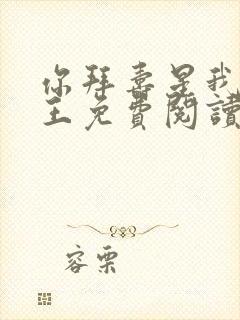 你拜喜是我
王免費閱讀
容栗